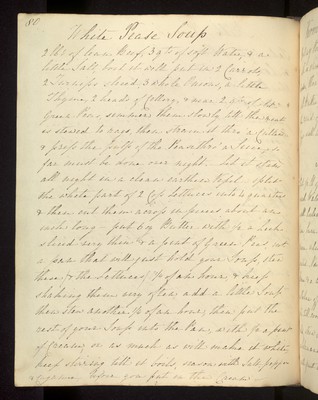 80
White Pease Soup
2 lbs of lean Beef, 3 qts of soft Water, & a
little Salt, boil it well put in 2 Carrots,
2 Turnips sliced, 3 whole Onions, a little
Thyme, 2 heads of Cellery, & near 2 qts of old
Green Peas, simmer them slowly till the meat
is stewed to rags, then strain it thro a Cullender
& press the pulp of the Pease thro' a Sieve, so
far must be done over night. let it stand
all night in a clean earthen Vessel. split
the whole part of 2 Cos lettuces into 4 quarters
& then cut them across in pieces about an
inch long - put oz Butter with
sliced very thin & a pint of Green Peas into
a pan that will just hold your Soup, stew
them & the Lettuces, 1/2 of an hour, & keep
shaking them very often, add a little Soup
then stew another 1/2 of an hour, then put the
rest of your Soup into the Pan, with 1/2 a pint
of Cream, or as much as will make it white,
keep stirring till it boils, season with Salt, pepper
& Cayenne, before you put in the Cream.